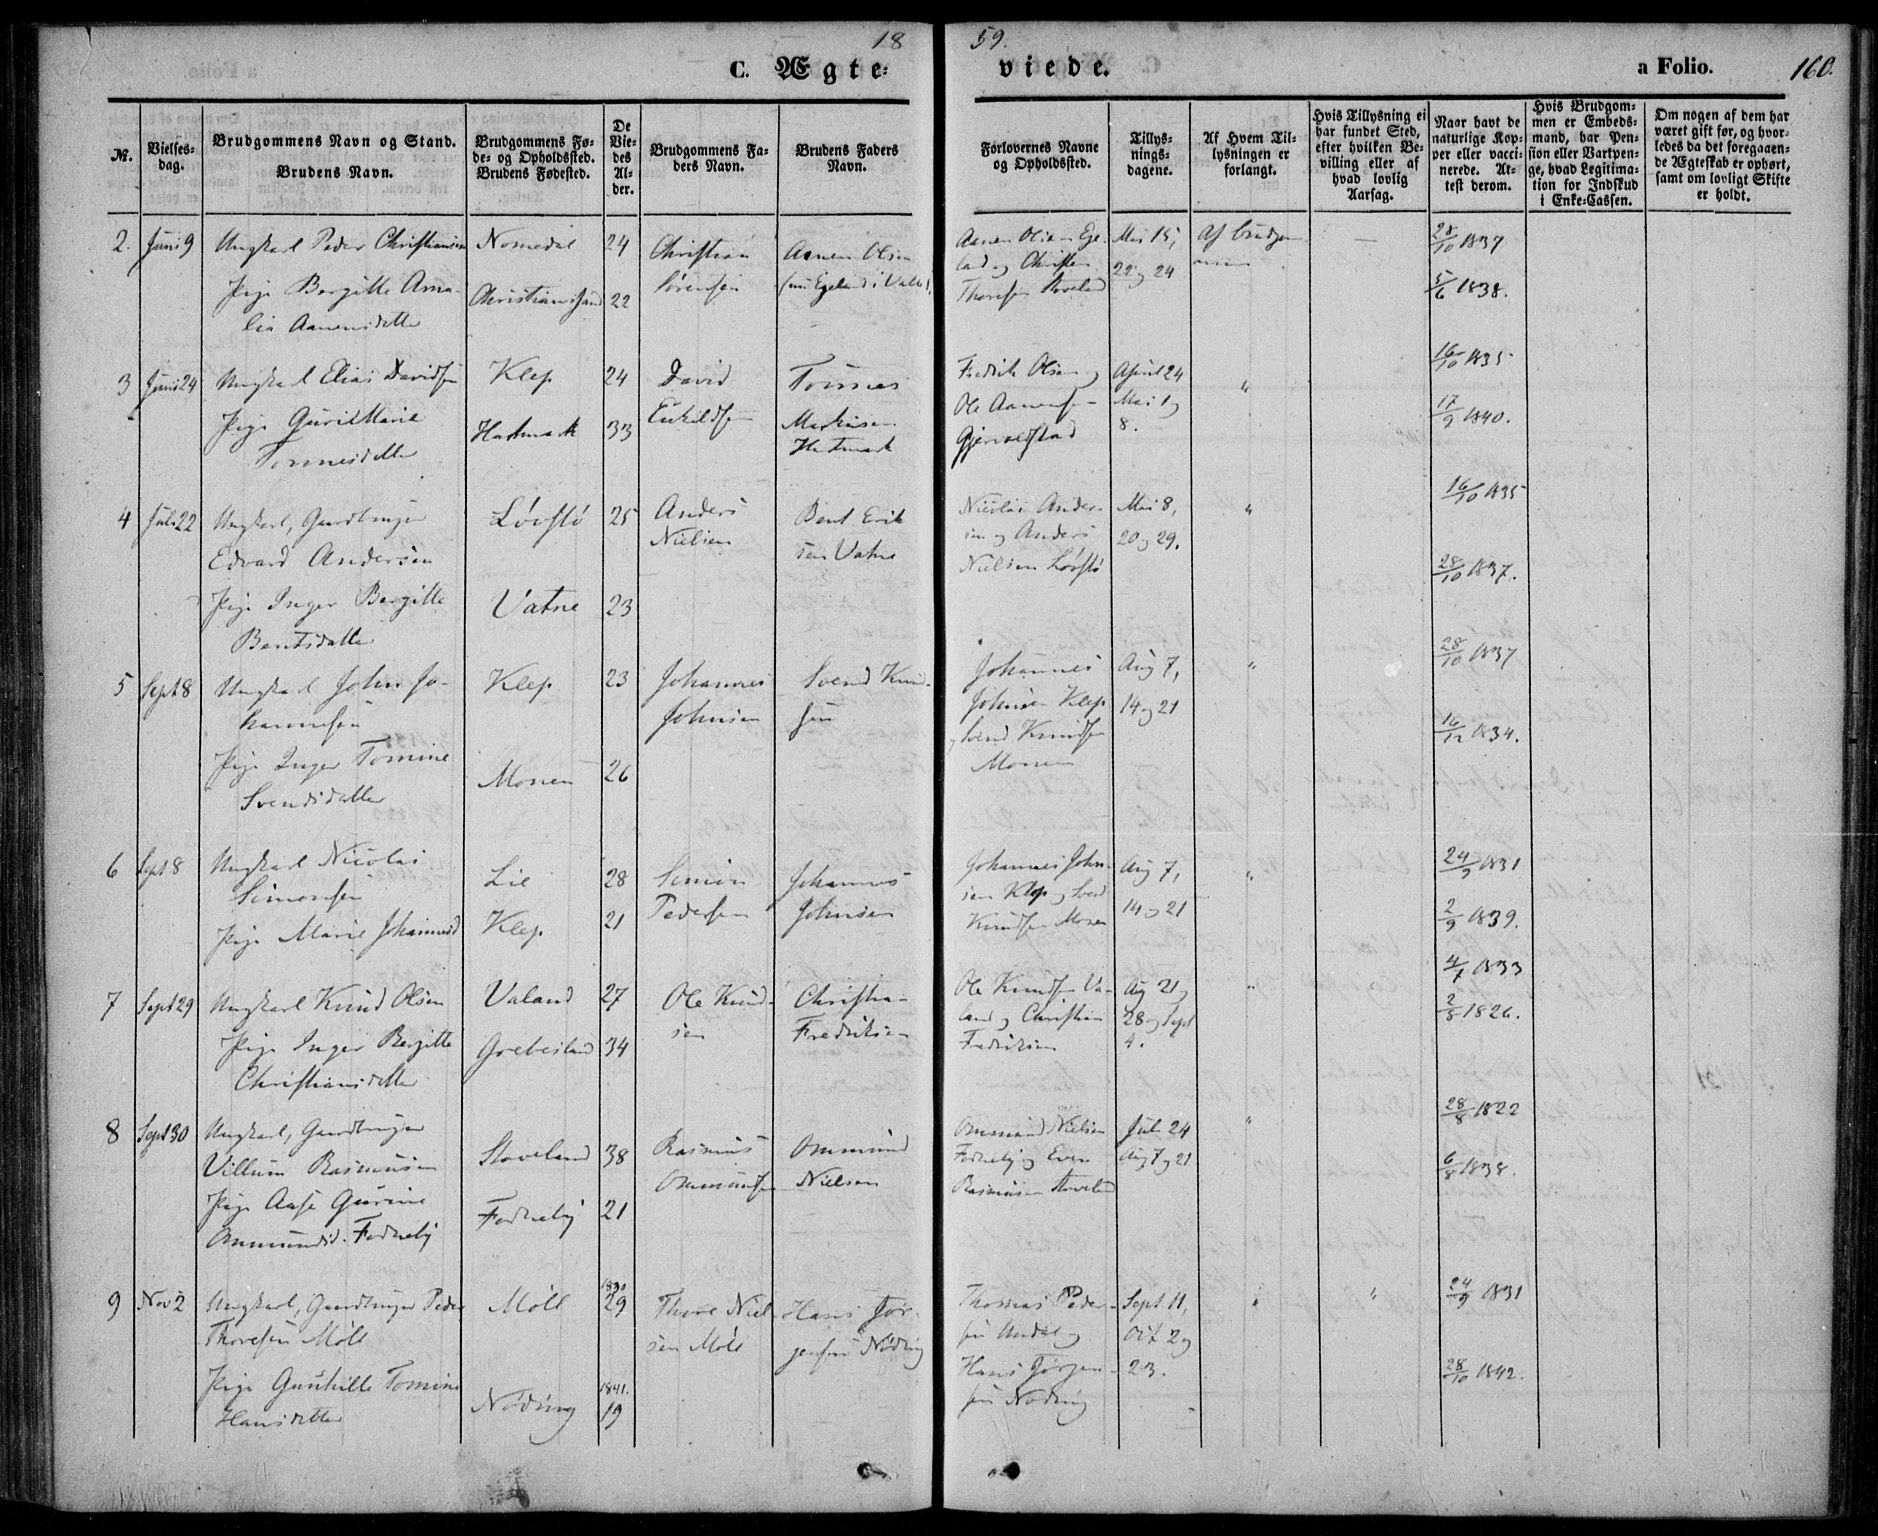 18 59.
C. Ægte- viede. a Folio. 160.
№.
Vielses-
dag.
Brudgommens Navn og Stand.
Brudens Navn.
Brudgommens Fø-
de- og Opholdssted.
Brudens Fødested.
De
Vie-
des
Al-
der.
Brudgommens Fa-
ders Navn.
Brudens Faders
Navn.
Forlovernes Navne
og Opholdssted.
Tillys-
nings-
dagene.
Af Hvem Til-
lysningen er
forlangt.
Hvis Tillysning ei
har fundet Sted,
efter hvilken Be-
villing eller af
hvad lovlig
Aarsag.
Naar havt de
naturlige Kop-
per eller vacci-
nerede. At-
test derom.
Hvis Brudgom-
men er Embeds-
mand, har Pen-
sion eller Vartpen-
ge, hvad Legitima-
tion for Indskud
i Enke-Cassen.
Om nogen af dem har
været gift før, og hvor-
ledes da det foregaaen-
de Ægteskab er ophørt,
samt om lovligt Skifte
er holdt.
2. Juni 9
Ungkarl Peder Christiansen
Pige Bergitte Ama-
lia Aanensdatter
Nomedal
Christianssand
24
22
Christian
Sørensen
Aanen Olsen
Aanen Olsen Ege-
land og Christen
Thoresen Stoveland
Mai 15,
22 og 24
Af Brudgom-
men
—
28/10 1837
5/6 1838.
3 Juni 24
Ungkarl Elias Davidsen
Pige Guri Marie
Tønnesdatter
Klep
Hatmark
24
33
David
Eskildsen
Tønnes
Markusen
Hatmark
Fredrik Olsen og
Ole Aanensen
Gjervoldstad
April 24
Mai 1 og
8.
"
16/10 1835
17/9 1840.
4 Juli 22
Ungkarl, Gaardbruger
Edvard Andersen
Pige Inger Bergitte
Bentsdatter
Løvslø
Vatne
25
23
Anders
Nielsen
Bent Erik
sen Vatne
Nicolai Ander-
sen og Anders
Nielsen Løvslø
Mai 8,
20 og 29.
"
16/10 1835
28/10 1837.
5 Sept 8
Ungkarl John Jo-
hannesen
Pige Inger Tomine
Svendsdatter
Klep
Monen
23
26
Johannes
Johnsen
Svend Knud-
sen
Johannes
Johnsen Klep
og Svend Knudsen
Monen
Aug 7,
14 og 21
"
28/10 1837
16/12 1834.
6 Sept 8
Ungkarl Nicolai
Simonsen
Pige Marie Johannesd
Lie
Klep
28
21
Simon
Pedersen
Johannes
Johnsen
Johannes John-
sen Klep og Svend
Knudsen Monen
Aug 7,
14 og 21
"
24/9 1831
2/9 1839.
7 Sept 29
Ungkarl Knud Olsen
Pige Inger Bergitte
Christiansdatter
Valand
Grebesland
27
34
Ole Knud-
sen
Christian
Fredriksen
Ole Knudsen Va-
land og Christian
Fredriksen
Aug 21,
28 og Sept
4.
"
4/7 1833
2/8 1826.
8 Sept 30
Ungkarl, Gaardbruger
Villum Rasmusen
Pige Aase Gurine
Ommundsd. Fodneby
Stoveland
Fodneby
38
21
Rasmus
Ommundsen
Ommund
Nielsen
Ommund Nielsen
Fodneby og Even
Rasmusen Stoveland
Juli 24
Aug 7 og 21
"
28/8 1822
6/8 1838.
9 Nov 2
Ungkarl, Gaardbruger Peder
Thoresen Møll
Pige Gunhilde Tomine
Hansdatter
Møll
Nøding
1830
29
1841.
19
Thore Niel-
sen Møll
Hans Jør-
gensen Nøding
Thomas Peder-
sen Undal og
Hans Jørgen-
sen Nøding
Sept. 11,
Oct 2 og
23.
"
"
24/9 1831
28/10 1842.